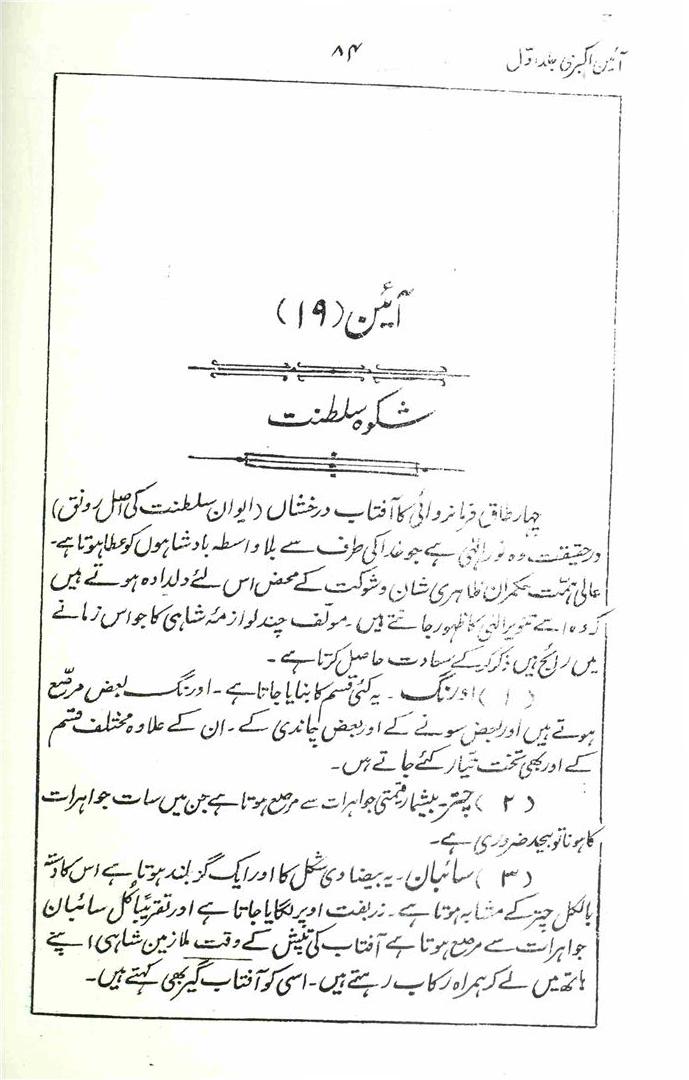 آئین اکبری جلد اول
۸۴
آئین (۱۹)
شکوہ سلطنت
چہار طاق فرمانروائی کا آفتاب درخشاں (ایوان سلطنت کی اصل رونق)
درحقیقت وہ نور الٰہی ہے جو خدا کی طرف سے بلا واسطہ بادشاہوں کو عطا ہوتا ہے۔
عالی ہمّت حکمران ظاہری شان و شوکت کے محض اس لئے دلدادہ ہوتے ہیں
کہ وہ اسے تنویر الٰہی کا ظہور جانتے ہیں۔ مولّف چند لوازمۂ شاہی کا جو اس زمانے
میں رائج ہیں ذکر کر کے سعادت حاصل کرتا ہے۔
(۱) اورنگ ۔ یہ کئی قسم کا بنایا جاتا ہے۔ اورنگ بعض مرصّع
ہوتے ہیں اور بعض سونے کے اور بعض چاندی کے۔ ان کے علاوہ مختلف قسم
کے اور بھی تخت تیار کئے جاتے ہیں۔
(۲) چتر۔ بیشمار قیمتی جواہرات سے مرصع ہوتا ہے جن میں سات جواہرات
کا ہونا تو بیحد ضروری ہے۔
(۳) سائبان۔ یہ بیضاوی شکل کا اور ایک گز بلند ہوتا ہے اس کا دستہ
بالکل چتر کے مشابہ ہوتا ہے۔ زربفت اوپر لگایا جاتا ہے اور تقریباً کُل سائبان
جواہرات سے مرصع ہوتا ہے آفتاب کی تپش کے وقت ملازمین شاہی اپنے
ہاتھ میں لے کر ہمراہ رکاب رہتے ہیں۔ اسی کو آفتاب گیر بھی کہتے ہیں۔